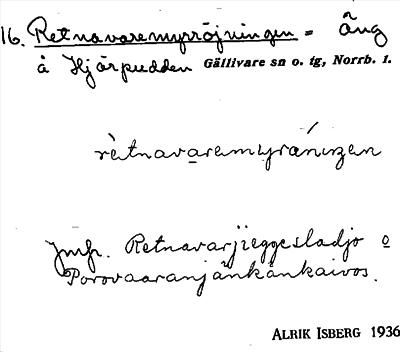 16. Retnavaremyrröjningen = äng
å Hjärpudden Gällivare sn o. tg, Norrb. l.
rètnavaremyrániŋen
Jmfr. Retnavarjieggesladjo o
Porovaaranjänkänkaivos.
ALRIK ISBERG 1936